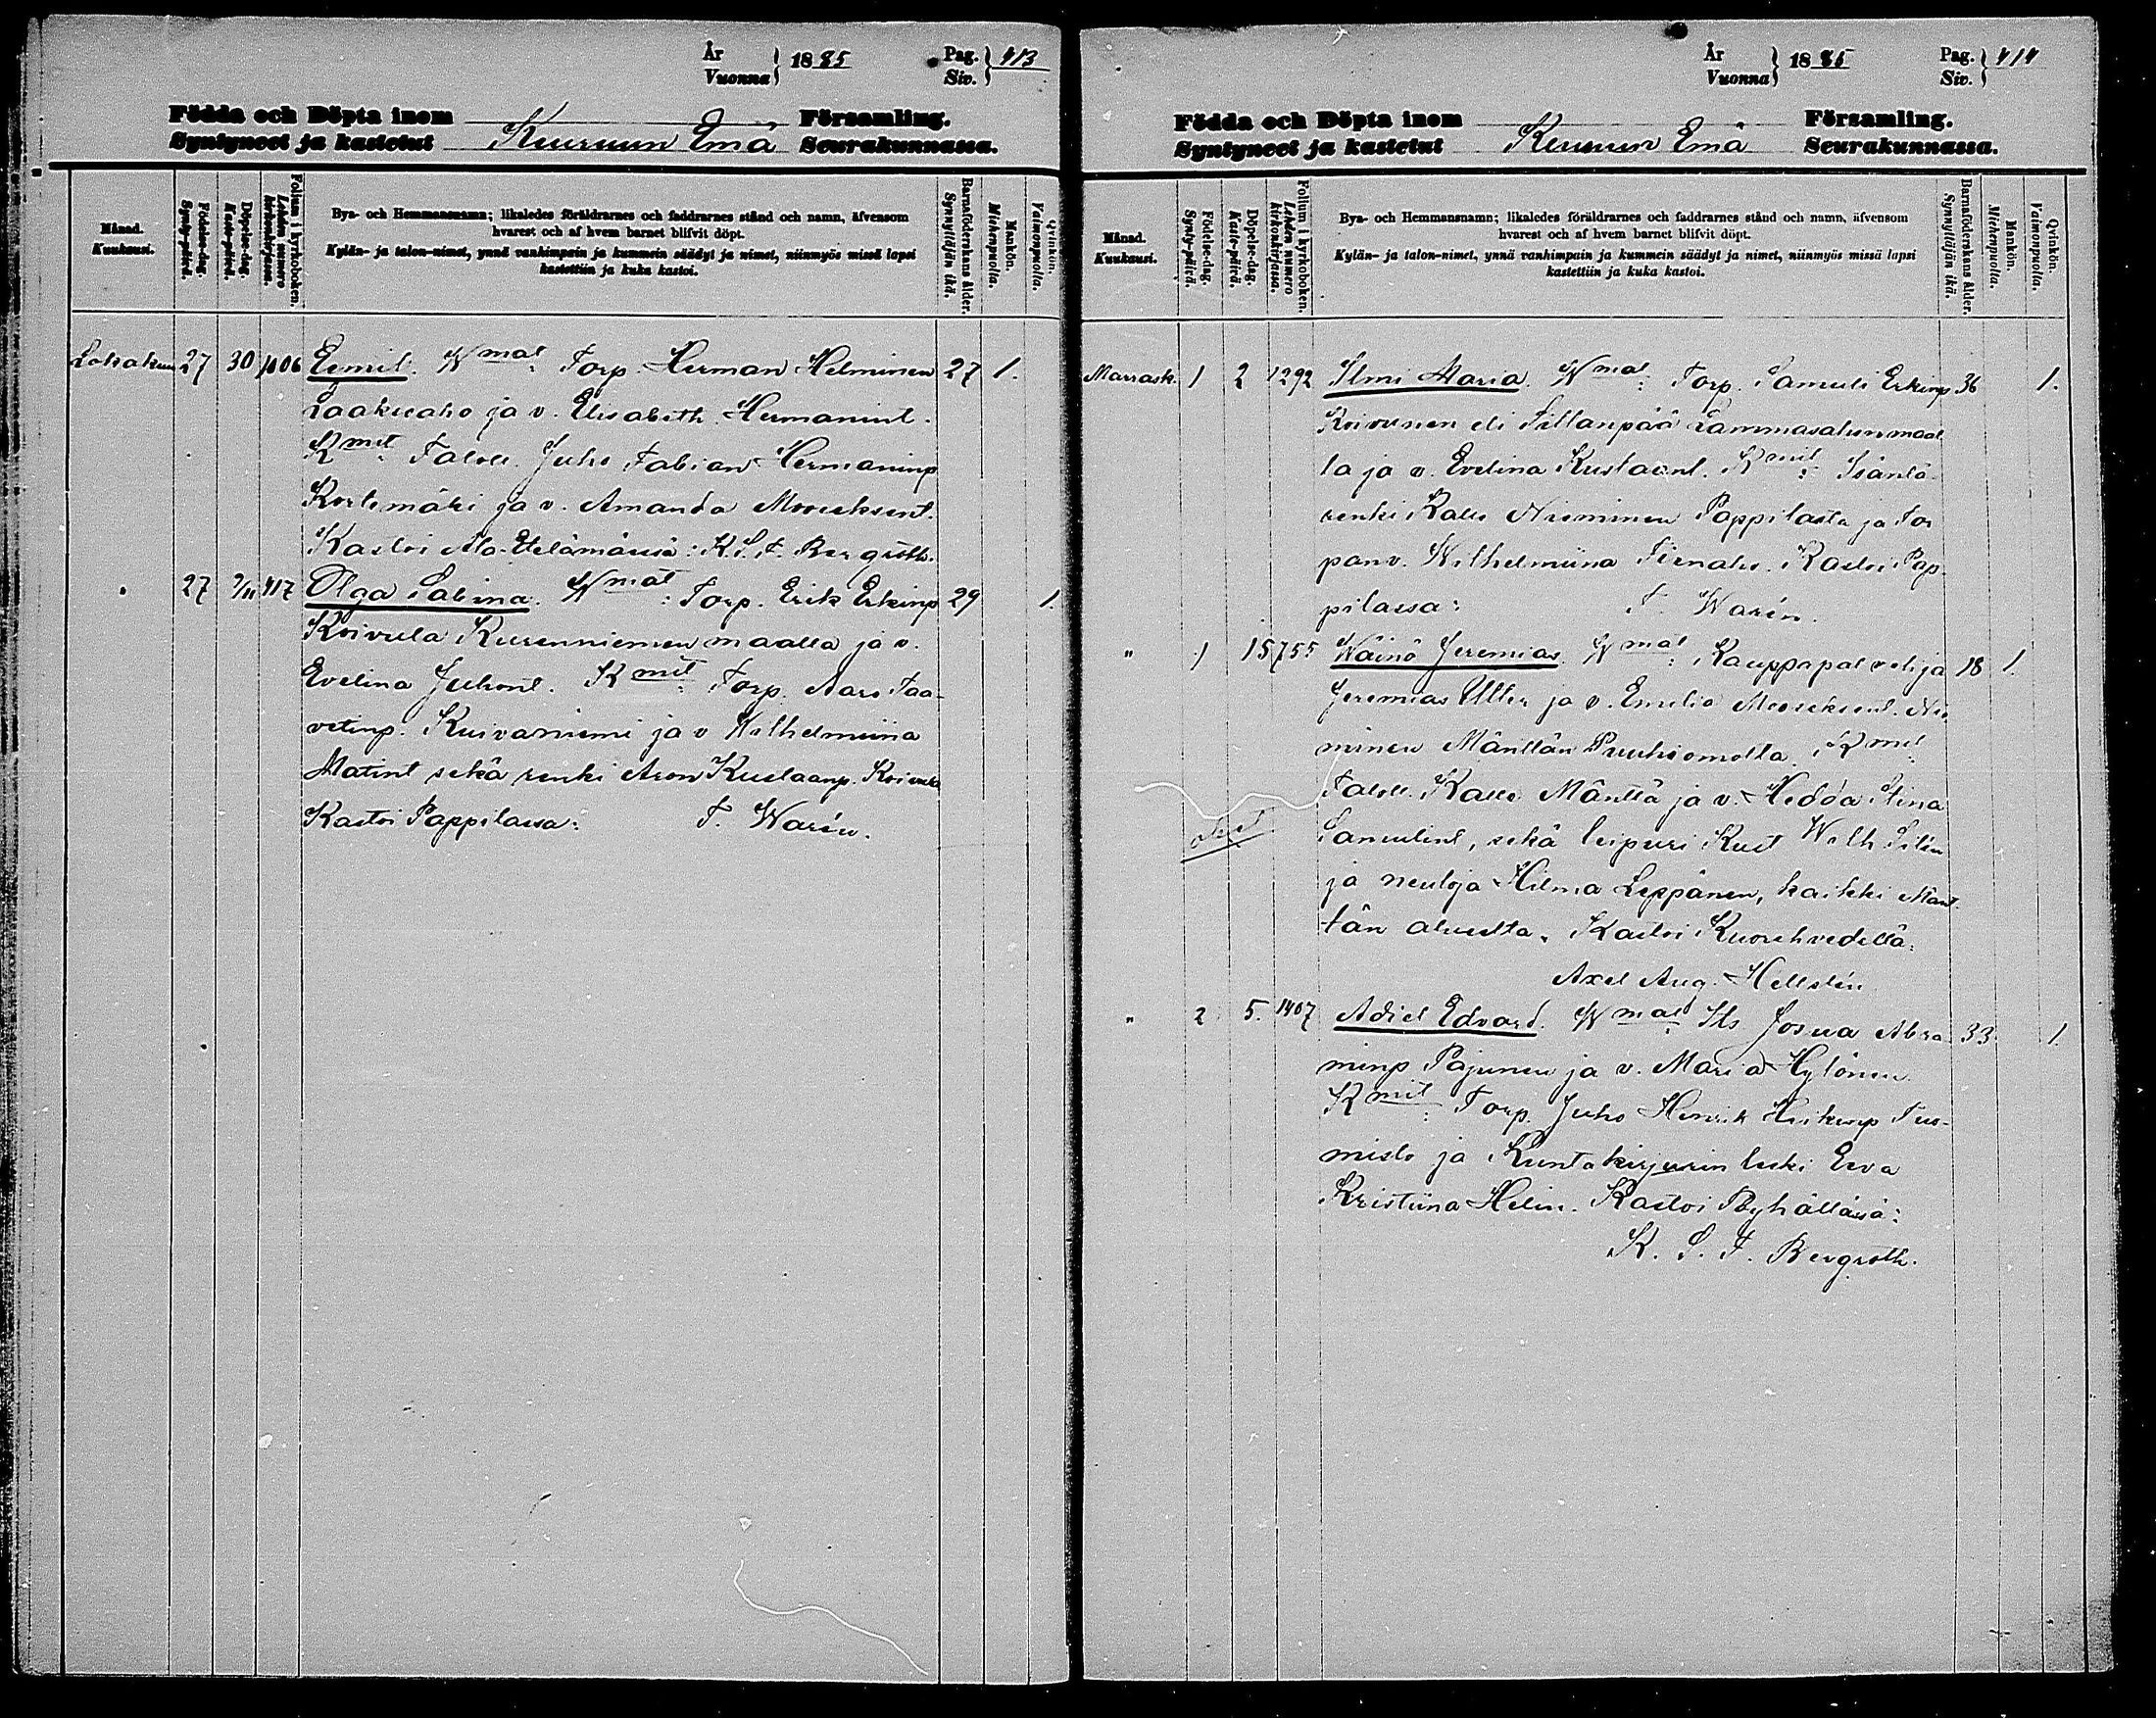 År
Vuonna } 1885 Pag.
Siv. } 413
Födda och Döpta inom Församling.
Syntyneet ja kastetut Keuruun Emä Seurakunnassa.
Månad.
Kuukausi.
Födelse-dag.
Synty-päivä.
Döpelse-dag.
Kaste-päivä.
Folium i kyrkoboken.
Lehden numero
kirkonkirjassa.
Bya- och Hemmansnamn; likaledes föräldrarnes och faddrarnes stånd och namn, äfvensom
hvarest och af hvem barnet blifvit döpt.
Kylän- ja talon-nimet, ynnä vanhimpain ja kummein säädyt ja nimet, niinmyös missä lapsi
kastettiin ja kuka kastoi.
Barnaföderskans ålder.
Synnyttäjän ikä.
Mankön.
Miehenpuolia.
Qvinkön.
Vaimonpuolia.
Lokakuu 27 30 1006 Eemil. Wmat: Torp. Herman Helminen 27 1.
Laakeaho ja v. Elisabeth Hermanint.
Kmit: Taloll. Juho Fabian Hermaninp
Kortemäki ja v. Amanda Mooseksent.
Kastoi Ala-Etelämässä: K. S. F. Bergroth.
" 27 2/11 417 Olga Sabina. Wmat: Torp. Erik Erkinp 29 1.
Koivula Kurenniemen maalla ja v.
Evelina Juhont. Kmit: Torp. Aaro Taa-
vetinp. Kuivaniemi ja v Wilhelmiina
Matint sekä renki Aron Kustaanp. Koivula
Kastoi Pappilassa: F. Warén.
År
Vuonna } 1885 Pag.
Siv. } 414
Födda och Döpta inom Församling.
Syntyneet ja kastetut Keuruun Emä Seurakunnassa.
Månad.
Kuukausi.
Födelse-dag.
Synty-päivä.
Döpelse-dag.
Kaste-päivä.
Folium i kyrkoboken.
Lehden numero
kirkonkirjassa.
Bya- och Hemmansnamn; likaledes föräldrarnes och faddrarnes stånd och namn, äfvensom
hvarest och af hvem barnet blifvit döpt.
Kylän- ja talon-nimet, ynnä vanhimpain ja kummein säädyt ja nimet, niinmyös missä lapsi
kastettiin ja kuka kastoi.
Barnaföderskans ålder.
Synnyttäjän ikä.
Mankön.
Miehenpuolia.
Qvinkön.
Vaimonpuolia.
Marrask. 1 2 1292 Ilmi Maria. Wmat: Torp. Samuli Erkinp 36 1.
Koivunen eli Sillanpää Lammasahunmaal
la ja v. Evelina Kustaant. Kmit: Isäntä-
renki Kalle Nieminen Pappilasta ja Tor
panv. Wilhelmiina Sienaho. Kastoi Pap-
pilassa: F. Warén.
" 1 15 755 Wäinö Jeremias. Wmat: Kauppapalvelija 18 1.
Jeremias Uller ja v. Emilia Mooseksent. Nie
minen Mänttän Puuhiomolla. Kmit:
Taloll. Kalle Mänttä ja v. Hedda Stina
Samulint, sekä leipuri Kust Wilh Silén
ja neuloja Hilma Leppänen, kaikki Mänt-
tän alueelta. Kastoi Kuorehvedellä:
Axel Aug. Hellstén
" 2 5. 1407 Adiel Edvard. Wmat: Its Josua Abra- 33 1.
minp Pajunen ja v. Maria Hytönen.
Kmit: Torp. Juho Henrik Heikinp Tuo-
misto ja Kuntakirjurin leski Eeva
Kristiina Helin. Kastoi Pöyhällässä:
K. S. F. Bergroth.